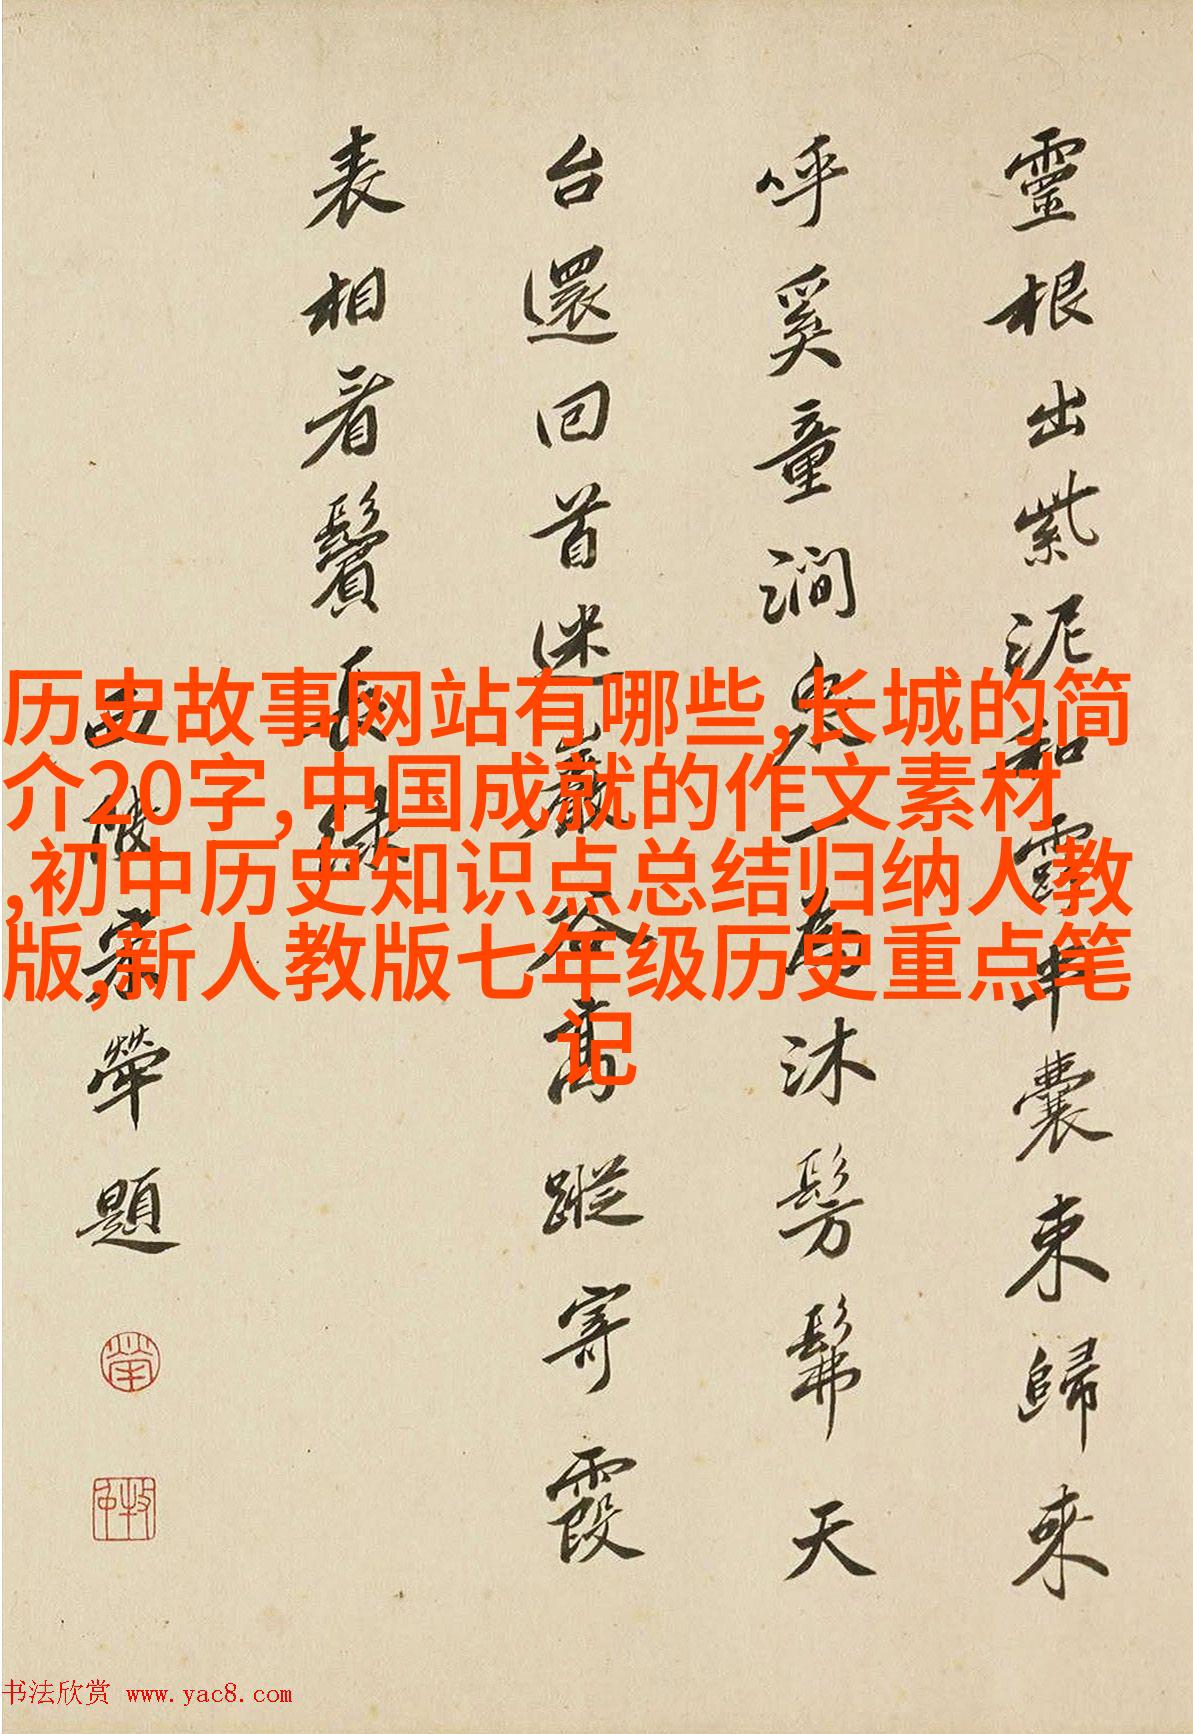 靈根出紫泥和露半囊束歸來
呼奚童澗泉一為沐髣髴天
台還回首迷巖谷高蹤寄霞
表相看鬢長綠
西陂宋犖題
历史故事网站有哪些,长城的简
介20字,中国成就的作文素材
,初中历史知识点总结归纳人教
版,新人教版七年级历史重点笔
记
书法欣赏 www.yac8.com